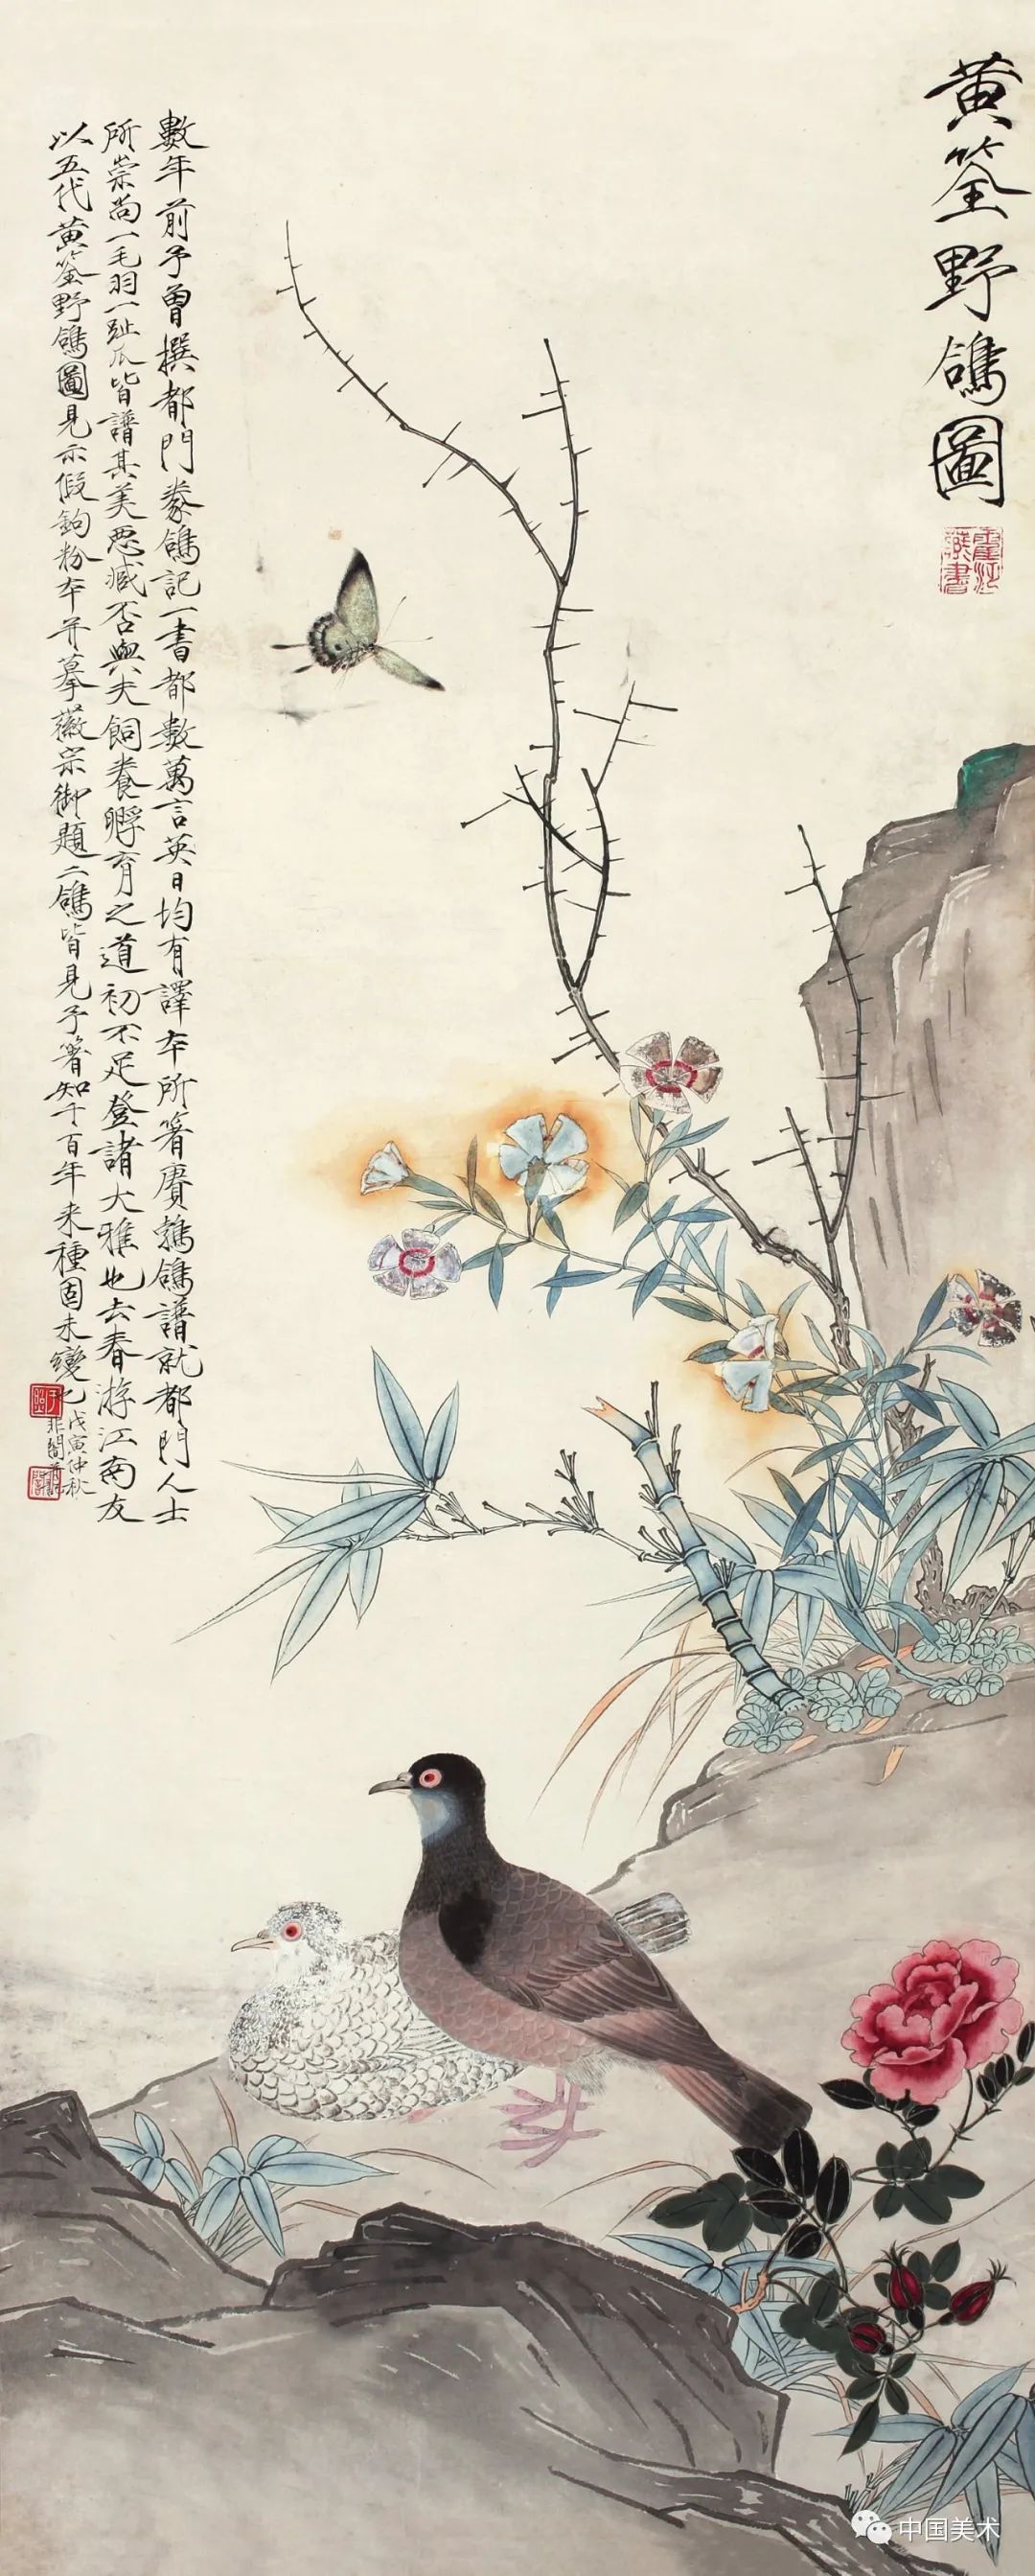 黄筌野鴿圖
數年前予曾撰都門豢鴿記一書都數萬言英日均有譯夲所箸賡鷯鴿譜就都門人士
所崇尚一毛羽一趾爪皆譜其美惡臧否與夫飼養孵育之道初不足登諸大雅也去春游江南友
以五代黄筌野鴿圖見示假鉤粉夲并摹徽宗御題二鴿皆見予箸知千百年来種固未變也
戊寅仲秋
非闇
中国美术